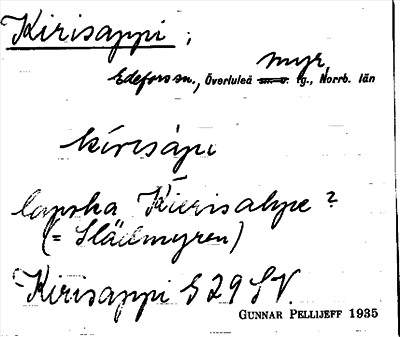 Kirisappi;
myr,
Edefors sn., Överluleå s. o. tg., Norrb. län
kírisápi
lapska Kierisahpe?
(= Slädmyren)
Kirisappi G 29 SV.
GUNNAR PELLIJEFF 1935